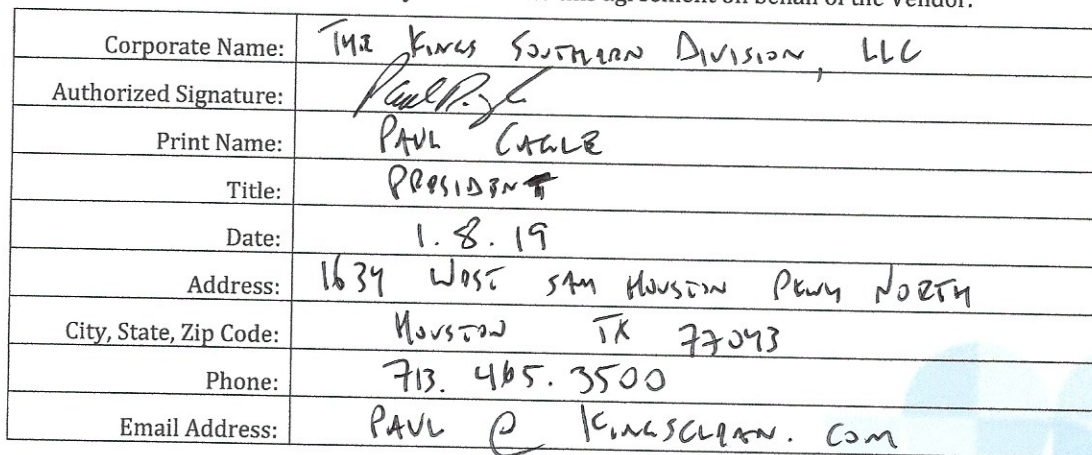 this agreement on behalf of the Vendor.
Corporate Name: THE KINGS SOUTHERN DIVISION, LLC
Authorized Signature:
Print Name: PAUL CAGLE
Title: PRESIDENT
Date: 1.8.19
Address: 1634 WEST SAM HOUSTON PKWY NORTH
City, State, Zip Code: HOUSTON TX 77043
Phone: 713. 465. 3500
Email Address: PAUL @ KINGSCLEAN. COM